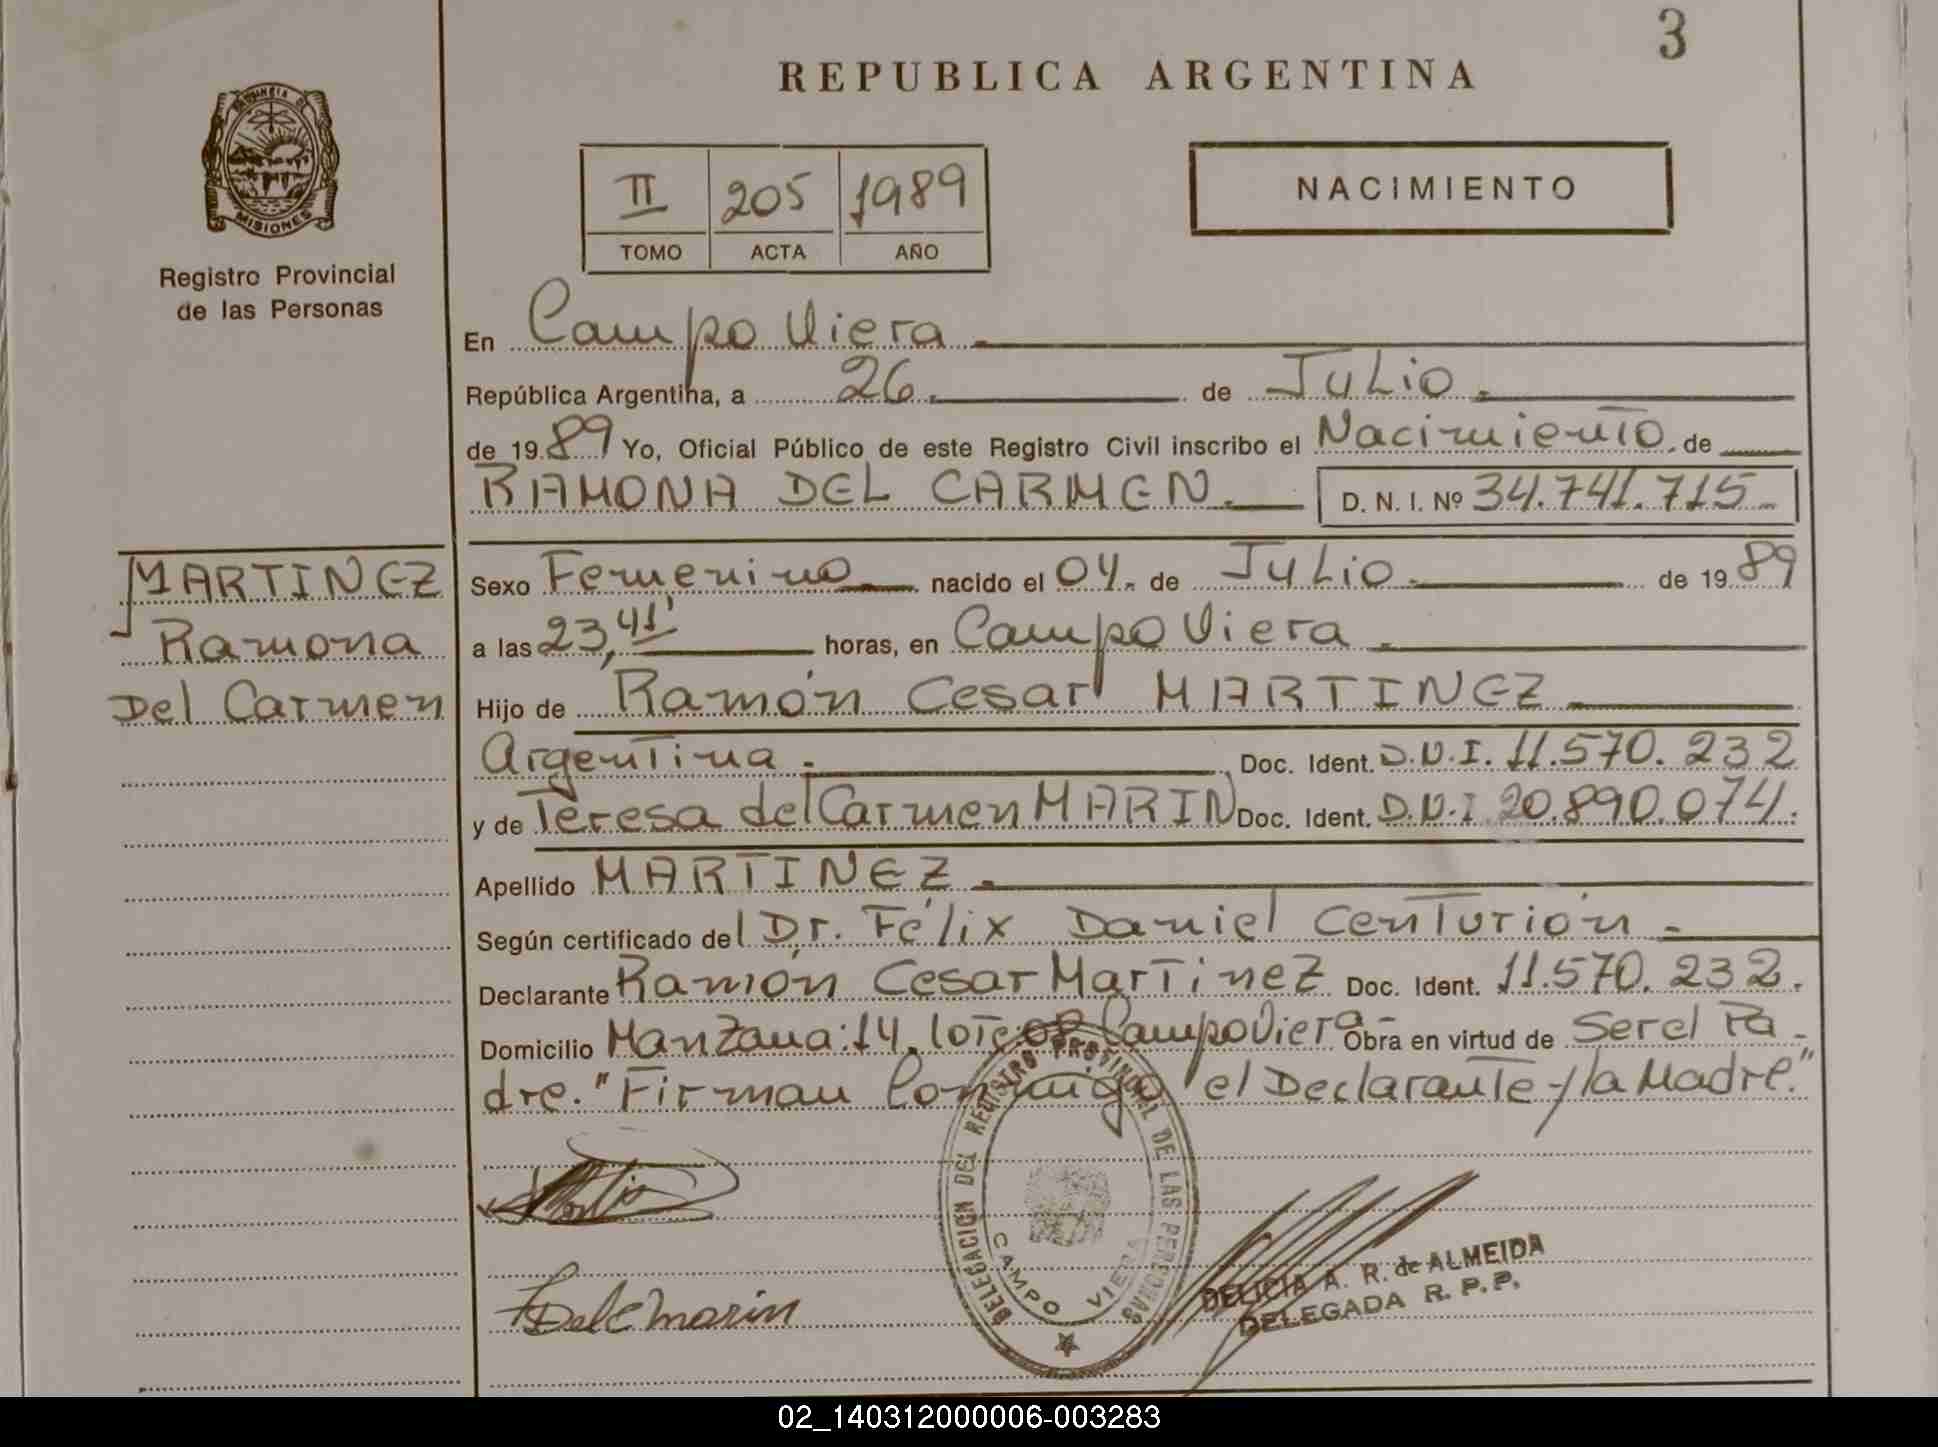 3
REPUBLICA ARGENTINA
PROVINCIA DE
MISIONES
Registro Provincial
de las Personas
II 205 1989
TOMO ACTA AÑO
NACIMIENTO
En Campo Viera.
República Argentina, a 26. de Julio.
de 1989 Yo, Oficial Público de este Registro Civil inscribo el Nacimiento de
RAMONA DEL CARMEN. D. N. I. Nº 34.741.715.-
MARTINEZ
Ramona
Del Carmen
Sexo Femenino nacido el 04. de Julio. de 1989
a las 23,41' horas, en Campo Viera.
Hijo de Ramón Cesar MARTINEZ
Argentina. Doc. Ident. D.N.I. 11.570.232
y de Teresa del Carmen MARIN Doc. Ident. D.N.I 20.890.074.
Apellido MARTINEZ.
Según certificado del Dr. Félix Daniel Centurión.
Declarante Ramón Cesar Martinez Doc. Ident. 11.570.232.
Domicilio Manzana:14. lote:02 Campo Viera- Obra en virtud de Ser el Pa-
dre. "Firman Conmigo el Declarante y la Madre."
DELEGACION DEL REGISTRO PROVINCIAL DE LAS PERSONAS
CAMPO VIERA
TDelCmarin
DELICIA A. R. de ALMEIDA
DELEGADA R. P. P.
02_140312000006-003283